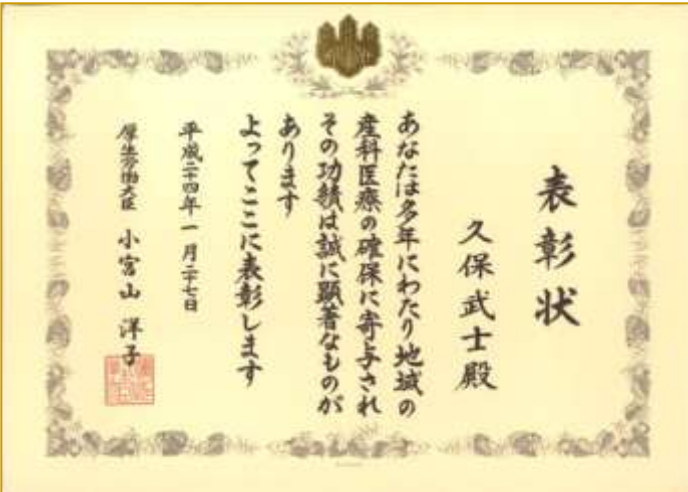 表彰状
久保武士殿
あなたは多年にわたり地域の
産科医療の確保に寄与され
その功績は誠に顕著なものが
あります
よってここに表彰します
平成二十四年一月二十七日
厚生労働大臣 小宮山洋子